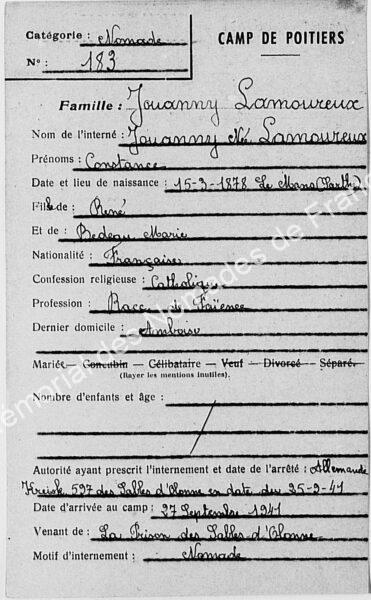 Catégorie : Nomade
CAMP DE POITIERS
N° : 183
Famille : Jouanny Lamoureux
Nom de l'interné : Jouanny Née Lamoureux
Prénoms : Constance
Date et lieu de naissance : 15-3-1878 Le Mans (Sarthe)
Fille de : René
Et de : Bedeau Marie
Nationalité : Française
Confession religieuse : Catholique
Profession : Racc. de Faïence
Dernier domicile : Amboise
Mariée — Concubin — Célibataire — Veuf — Divorcé — Séparé.
(Rayer les mentions inutiles).
Nombre d'enfants et âge :
Autorité ayant prescrit l'internement et date de l'arrêté : Allemande
Kreisk 597 des Sables d'Olonne en date du 25-9-41
Date d'arrivée au camp : 27 Septembre 1941
Venant de : La Prison des Sables-d'Olonne
Motif d'internement : Nomade
Mémorial des Nomades de France